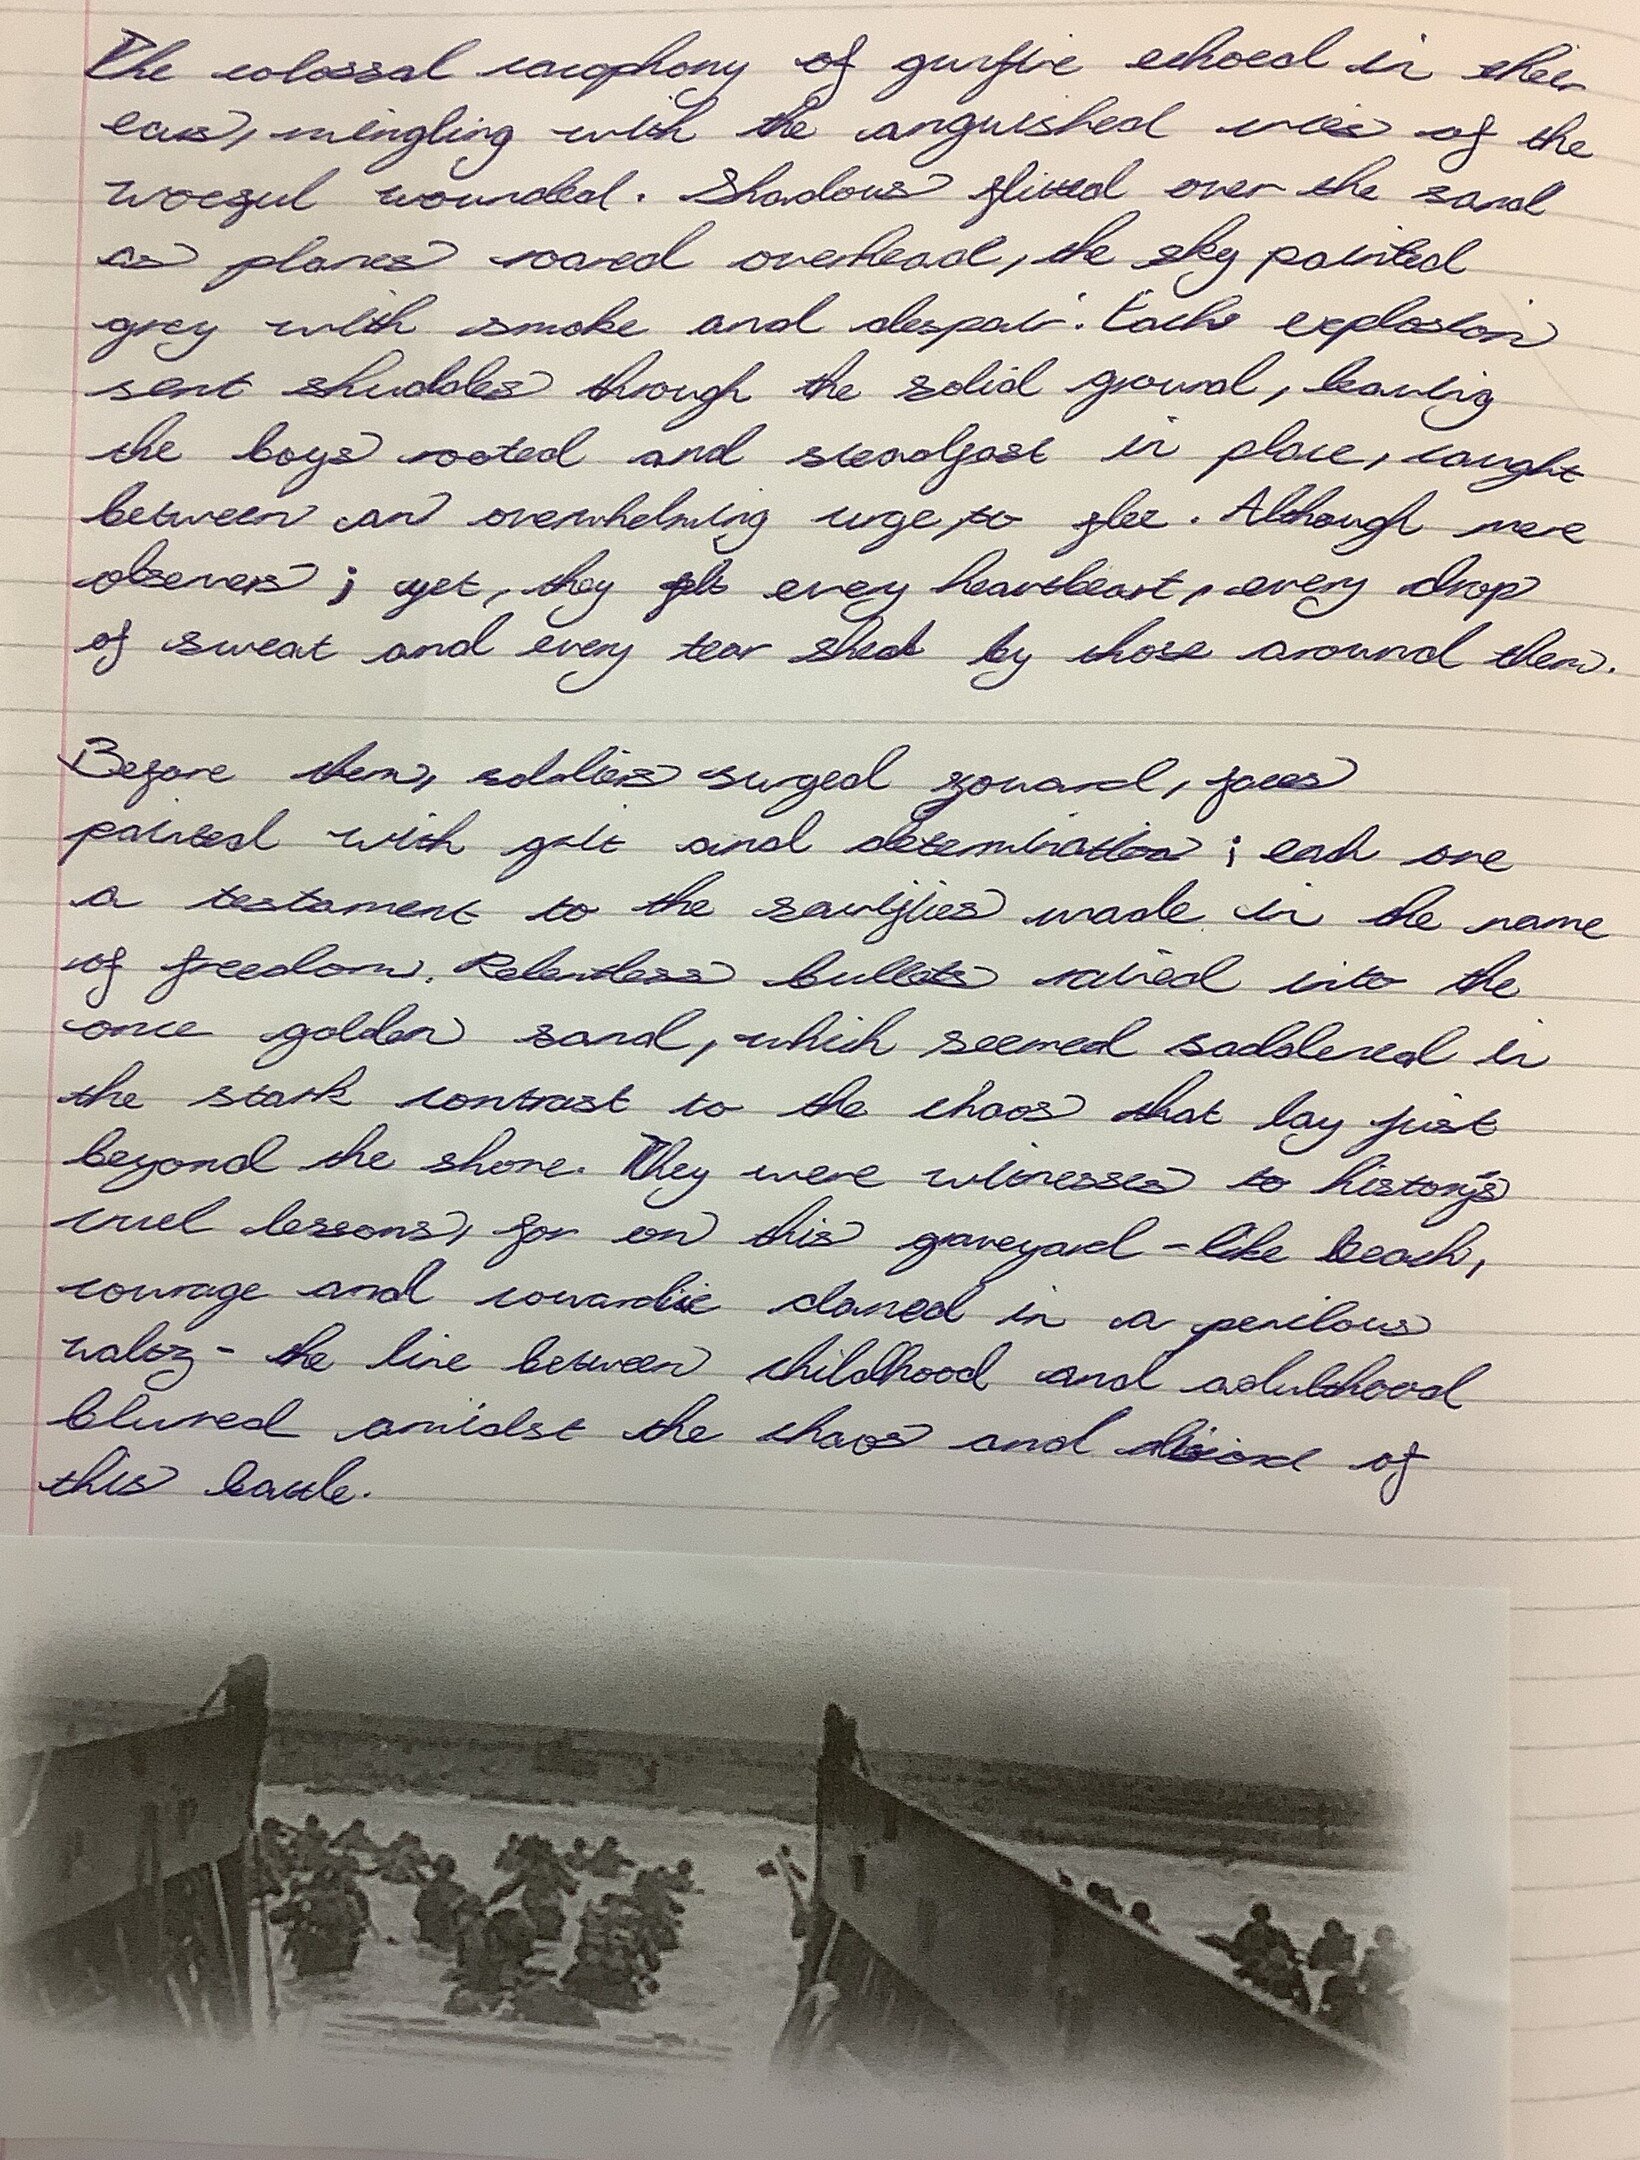 The colossal cacophony of gunfire echoed in their
ears, mingling with the anguished cries of the
woeful wounded. Shadows flitted over the sand
as planes roared overhead, the sky painted
grey with smoke and despair. Each explosion
sent shudders through the solid ground, leaving
the boys rooted and steadfast in place, caught
between an overwhelming urge to flee. Although mere
observers; yet, they felt every heartbeat, every drop
of sweat and every tear shed by those around them.
Before them, soldiers surged forward, faces
painted with grit and determination; each one
a testament to the sacrifices made in the name
of freedom. Relentless bullets rained into the
once golden sand, which seemed saddened in
the stark contrast to the chaos that lay just
beyond the shore. They were witnesses to history's
cruel lessons, for on this graveyard-like beach,
courage and cowardice danced in a perilous
waltz - the line between childhood and adulthood
blurred amidst the chaos and discord of
this battle.